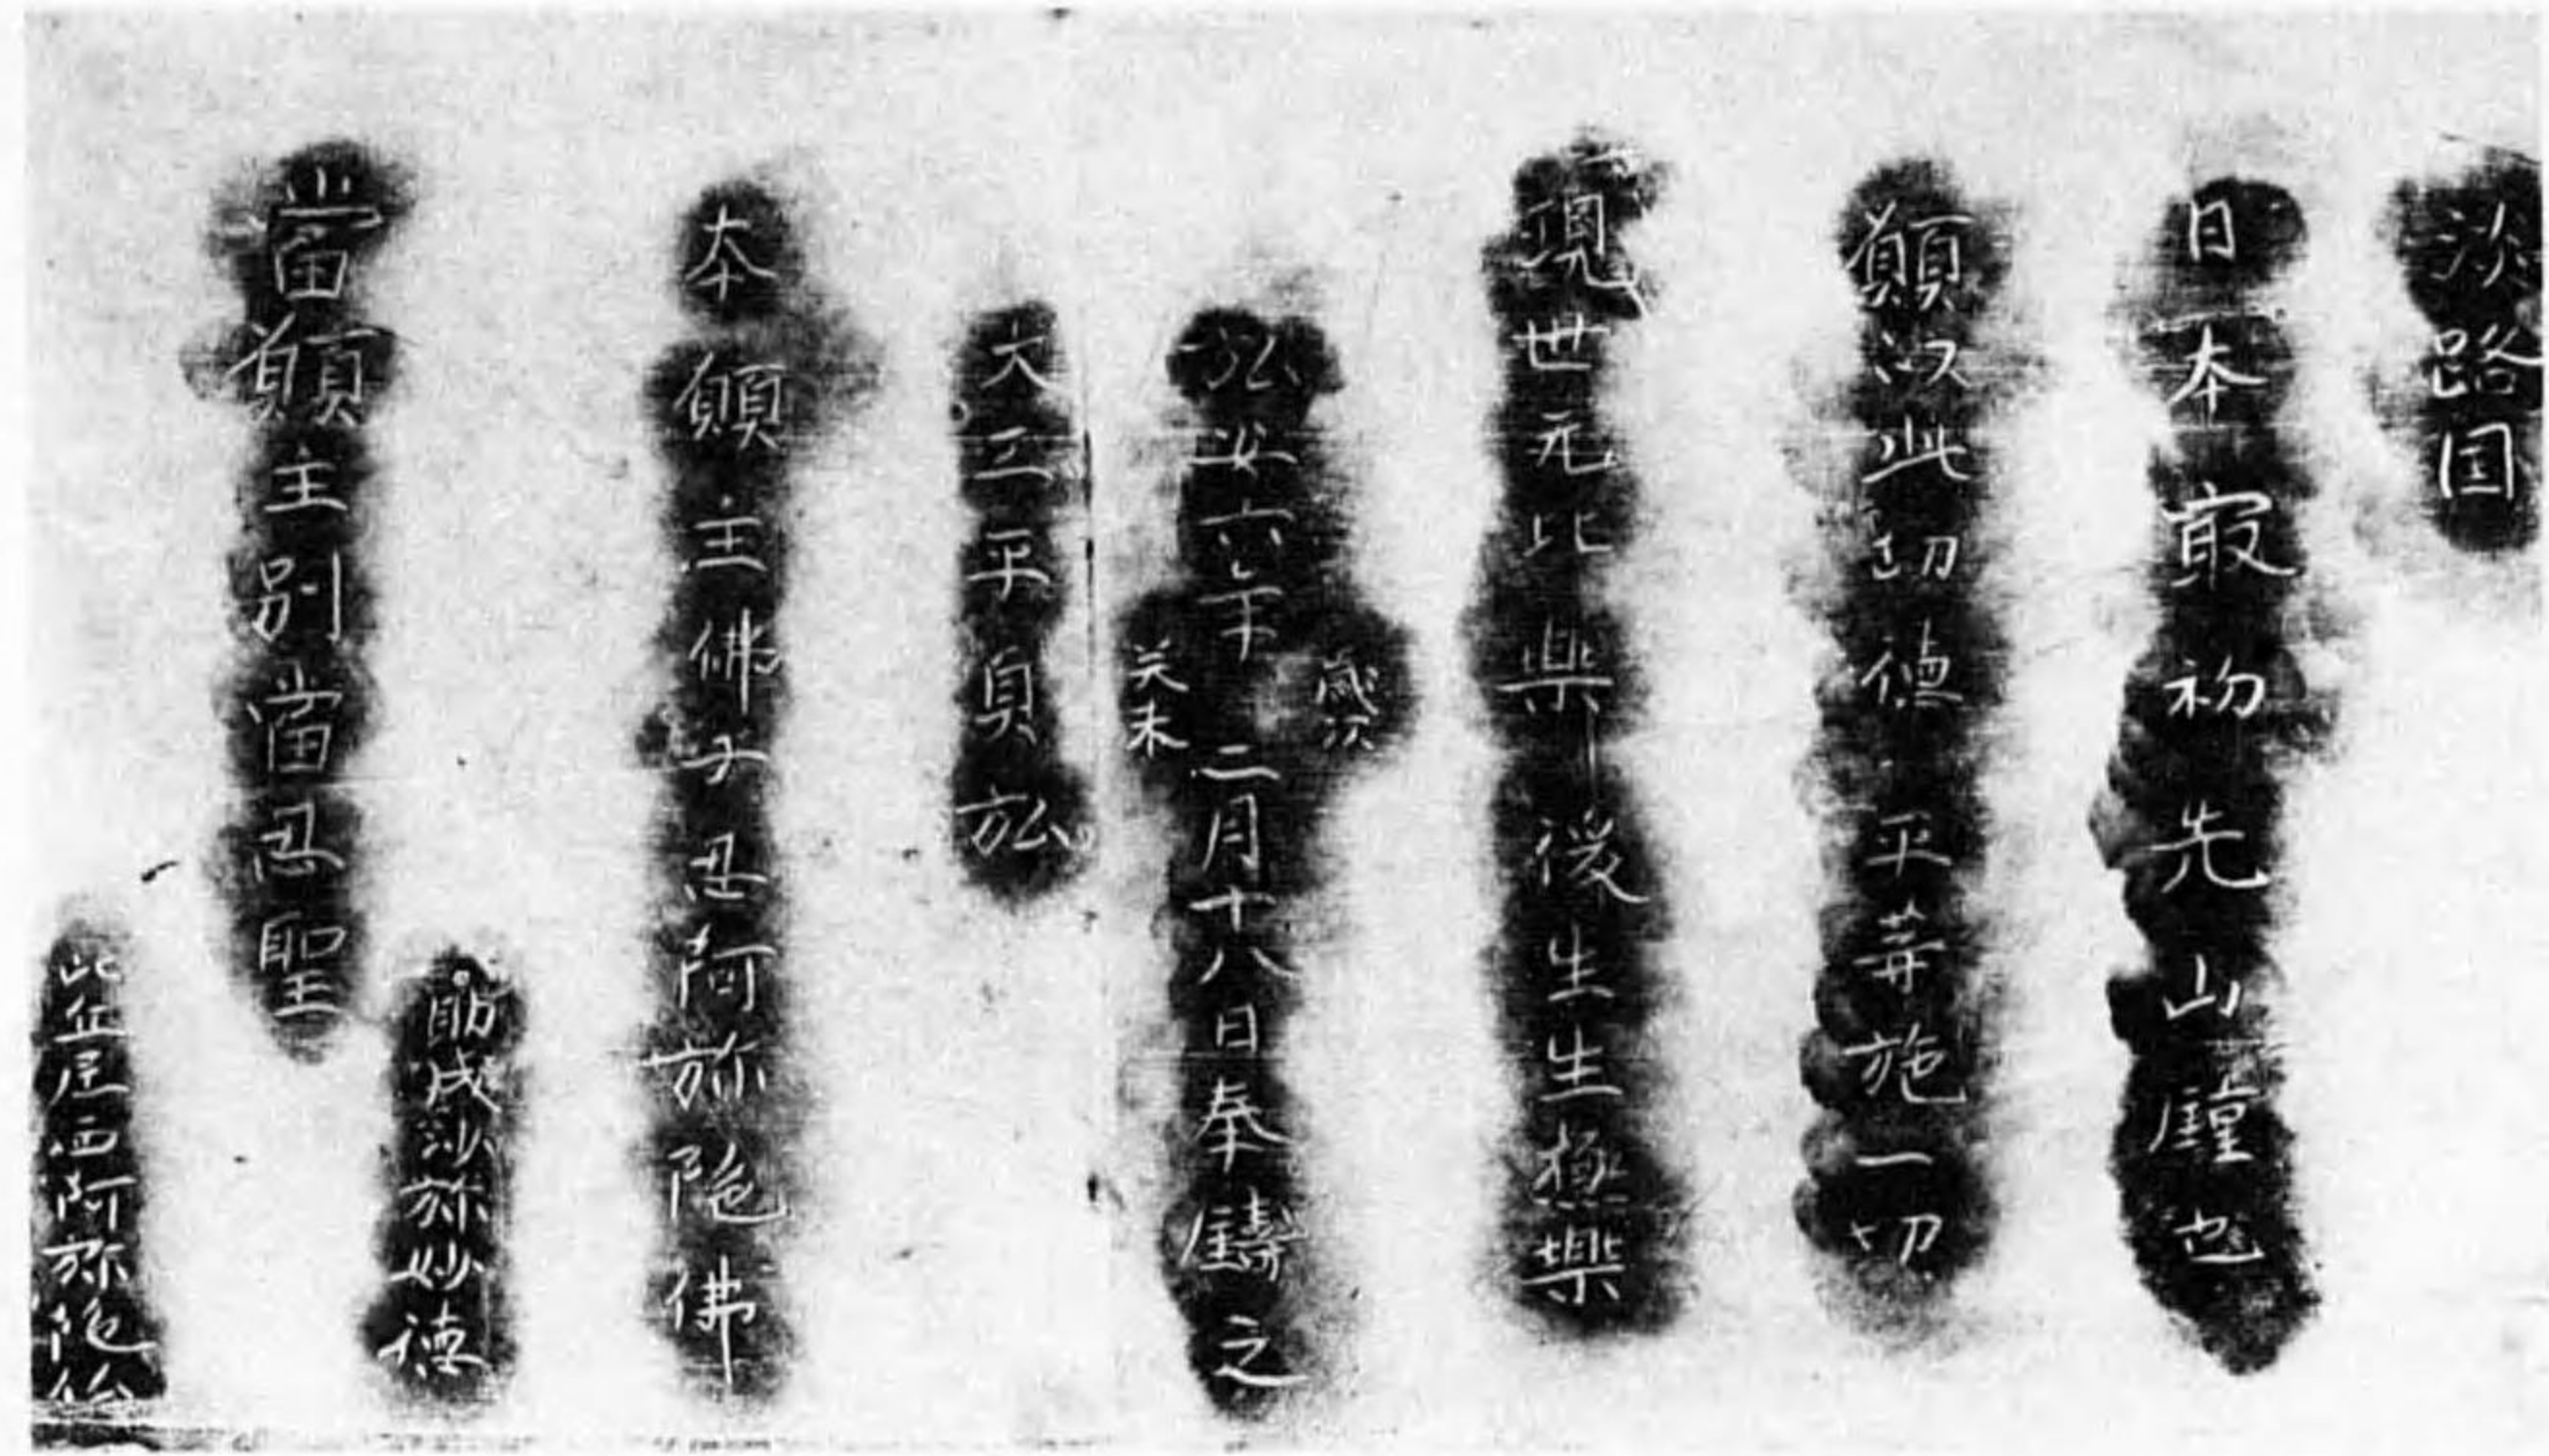 淡路国
日本冣初先山鐘也
願以此功徳平等施一切
現世无比樂後生生極樂
弘安六年歳次癸未二月十八日奉鑄之
大工平貞弘
本願主佛子忍阿弥陁佛
助成沙弥妙徳
當願主別當忍聖
比丘尼西阿弥陁佛